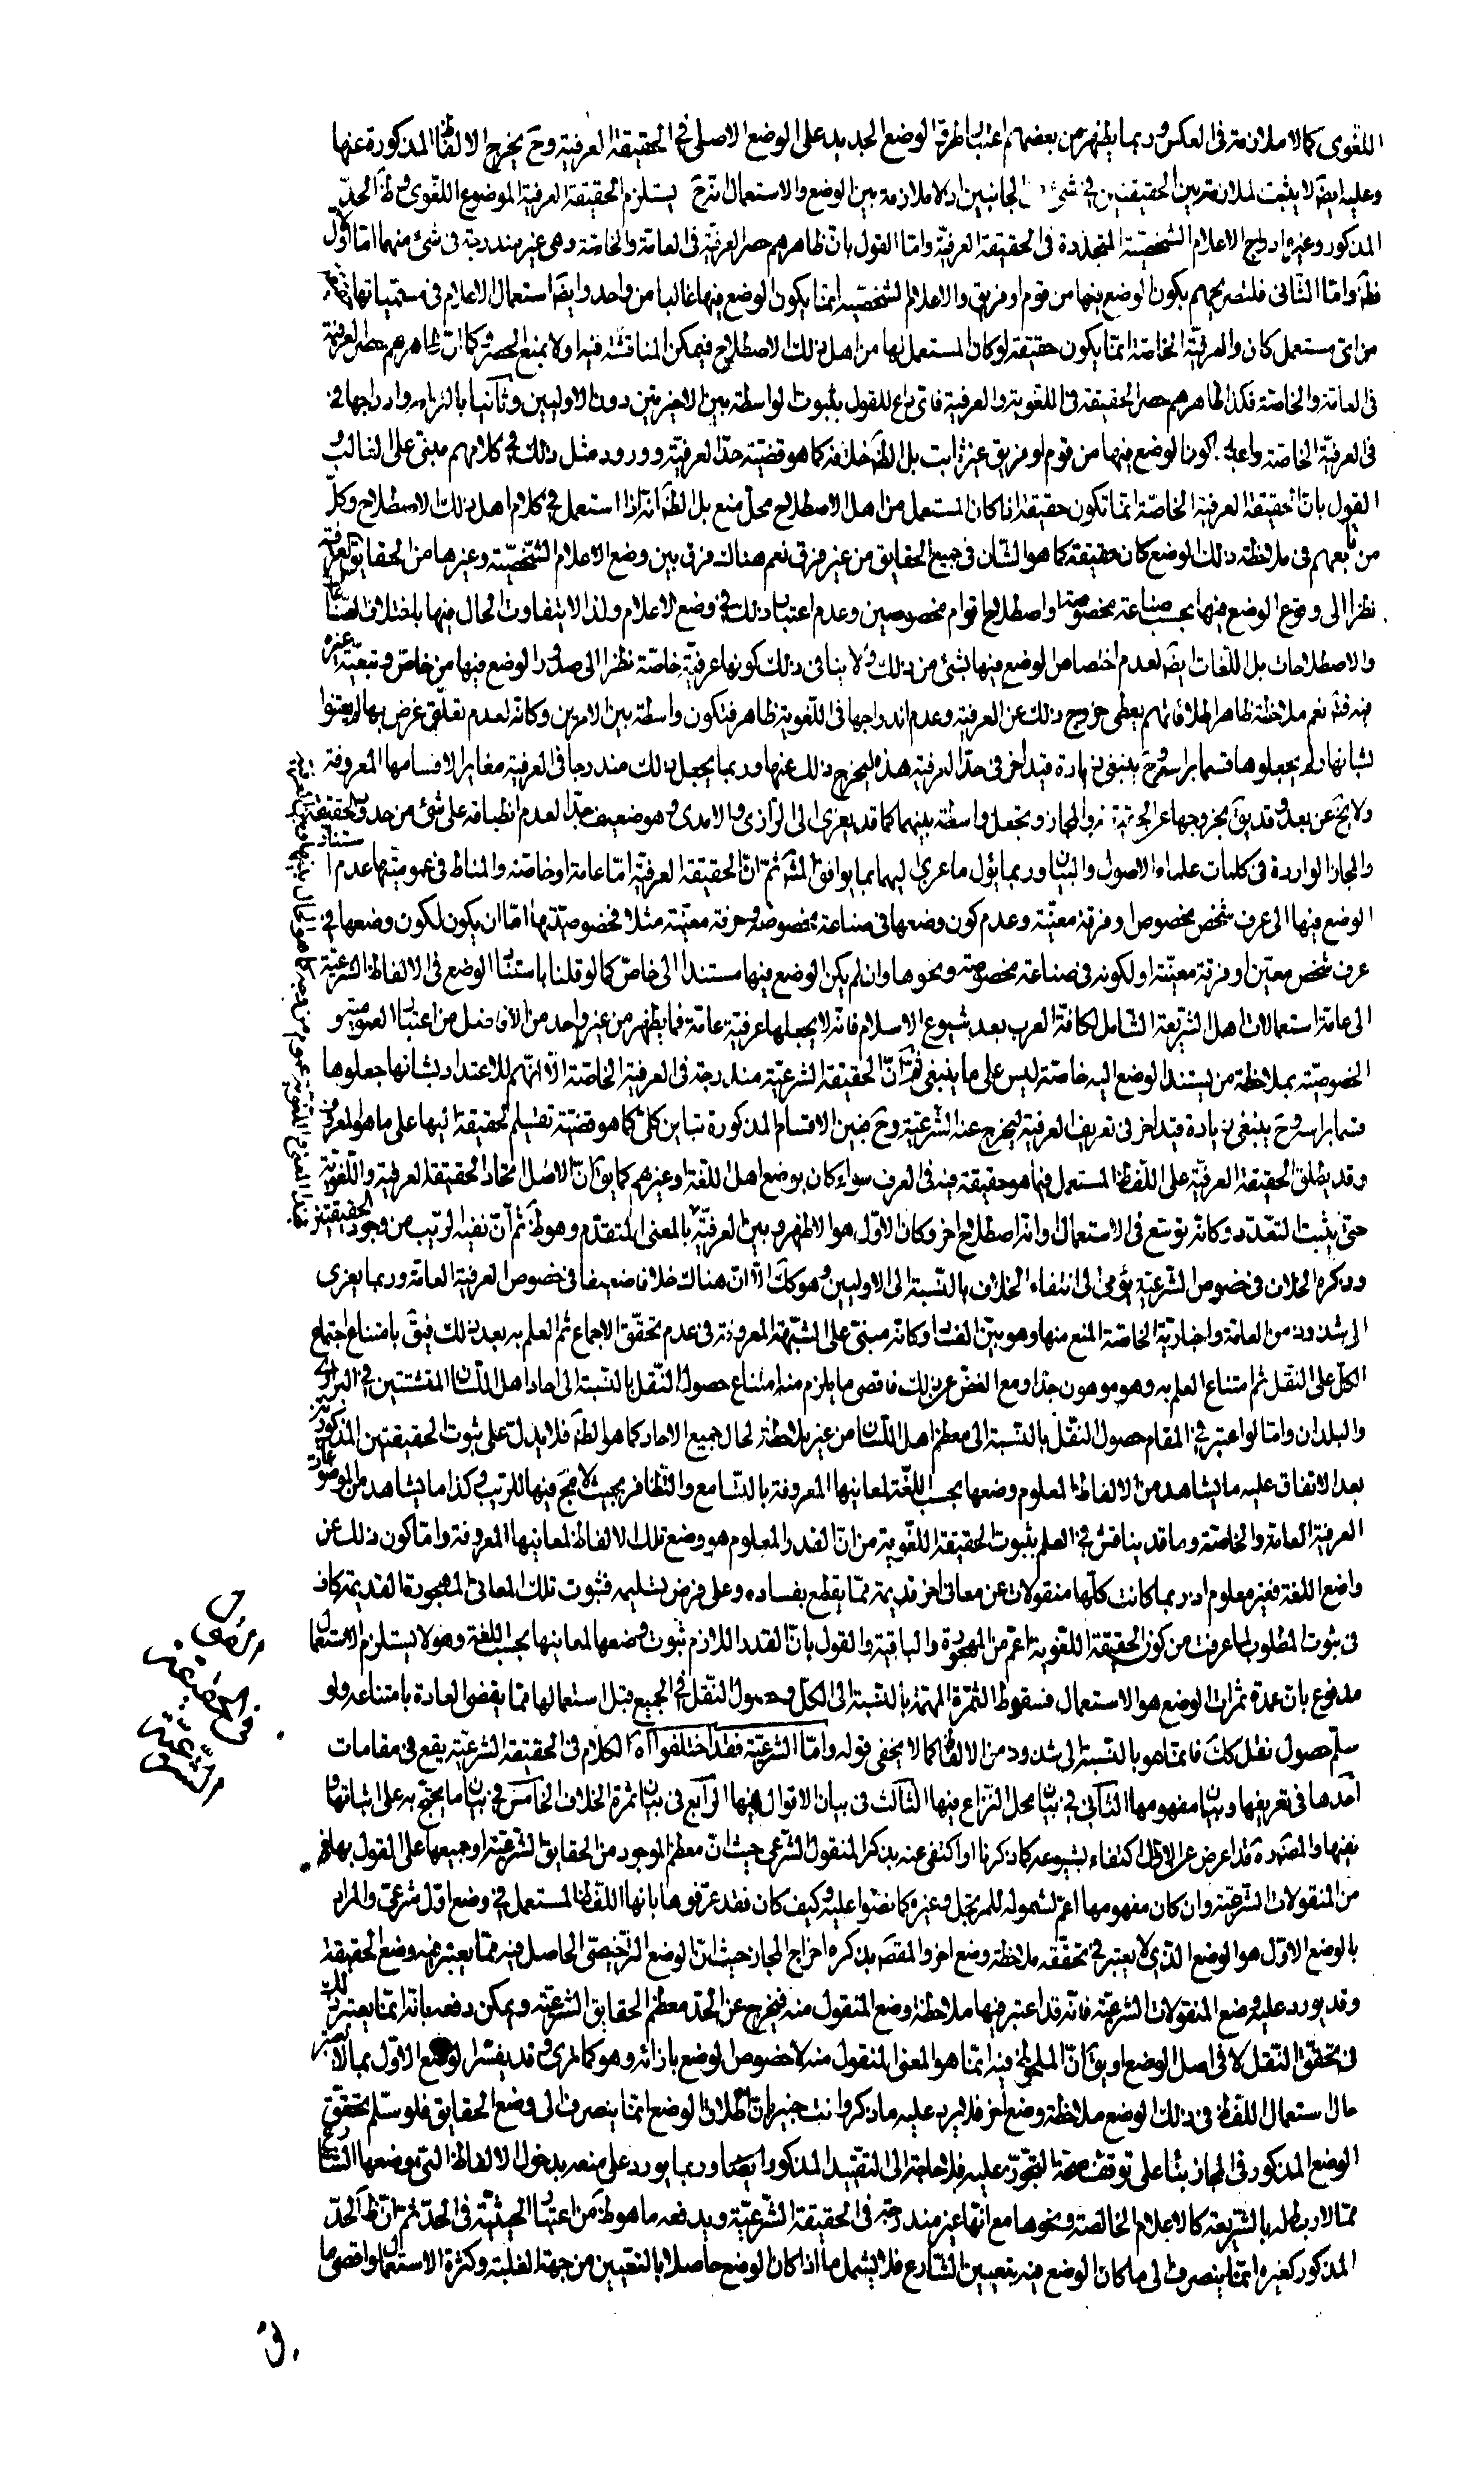 اللغوى كما لا ملازمة فى العكس وربما يظهر من بعضهم اعتبار طرو الوضع الجديد على الوضع الاصلى فى الحقيقة العرفية وح يخرج الالفاظ المذكورة عنها
وعليه ايضا لا يثبت ملازمة بين الحقيقتين فى شئ الجانبين اذ لا ملازمة بين الوضع والاستعمال نعم ح يستلزم الحقيقة العرفية الموضوع اللغوى وظ الحد
المذكور وغيره ادراج الاعلام الشخصية المتجددة فى الحقيقة العرفية واما القول بان ظاهرهم حصر العرفية فى العامة والخاصة وهى غير مندرجة فى شئ منهما اما الاول
فظ واما الثانى فلتصريحهم بكون الوضع فيها من قوم او فريق والاعلام الشخصية انما يكون الوضع فيها غالبا من واحد وايضا استعمال الاعلام فى مسمياتها
من اى مستعمل كان والعرفية الخاصة انما يكون حقيقة لو كان المستعمل لها من اهل ذلك الاصطلاح فيمكن المناقشة فيه اولا بمنع الحصر وكما ان ظاهرهم حصر العرفية
فى العامة والخاصة فكذا ظاهرهم حصر الحقيقة فى اللغوية والعرفية فاى داع للقول بثبوت الواسطة بين الاخيرتين دون الاوليين وثانيا بالتزام ادراجها فى
فى العرفية الخاصة كون الوضع فيها من قوم او فريق غير ثابت بل الظ خلافه كما هو قضية حد العرفية وورود مثل ذلك فى كلامهم مبنى على الغالب و
القول بان الحقيقة العرفية الخاصة انما تكون حقيقة اذا كان المستعمل من اهل الاصطلاح محل منع بل الظ انه اذا استعمل فى كلام اهل ذلك الاصطلاح وكل
من تابعهم فى ملاحظة ذلك الوضع كان حقيقة كما هو الشان فى جميع الحقايق من غير فرق نعم هناك فرق بين وضع الاعلام الشخصية وغيرها من الحقايق العرفية
نظرا الى وقوع الوضع فيها بحسب صناعة مخصوصة واصطلاح اقوام مخصوصين وعدم اعتبار ذلك فى وضع الاعلام ولذا لا يتفاوت الحال فيها باختلاف الصناعات
والاصطلاحات بل اللغات ايضا لعدم اختصاص الوضع فيها بشئ من ذلك ولا ينافى ذلك كونها عرفية خاصة نظرا الى صدور الوضع فيها من خاص وتبعية غيره
فيه فت نعم ملاحظة ظاهر اطلاقاتهم يعطى خروج ذلك عن العرفية وعدم اندراجها فى اللغوية ظاهر فتكون واسطة بين الامرين وكانه لعدم تعلق غرض بها لم يعتنوا
بشانها ولم يجعلوها قسما براسه وح ينبغى زيادة قيد اخر فى حد العرفية هذه ليخرج ذلك عنها وربما يجعل ذلك مندرجا فى العرفية مغايرا لاقسامها المعروفة
ولا يخ عن بعد وقد يق بخروجها عن الحقيقة والمجاز وتجعل واسطة بينهما كما قد يعزى الى الرازى والامدى وهو ضعيف جدا لعدم انطباقه على شئ من حدود الحقيقة
والمجاز الواردة فى كلمات علماء الاصول والبيان وربما يؤل ما عزى اليهما بما يوافق المش ثم ان الحقيقة العرفية اما عامة او خاصة والمناط فى عموميتها عدم استناد
الوضع فيها الى عرف شخص مخصوص او فرقة معينة وعدم كون وضعها فى صناعة مخصوصة وحرفة معينة مثلا فخصوصيتها اما ان يكون لكون وضعها فى
عرف شخص معين او فرقة معينة او لكونه فى صناعة مخصوصة ونحوها وان لم يكن الوضع فيها مستندا الى خاص كما لو قلنا باستناد الوضع فى الالفاظ الشرعية
الى عامة استعمالات اهل الشريعة الشامل لكافة العرب بعد شيوع الاسلام فانه لا يجعلها عرفية عامة فما يظهر من غير واحد من الافاضل من اعتبار العمومية و
الخصوصية بملاحظة من يستند الوضع اليه خاصة ليس على ما ينبغى ثم ان الحقيقة الشرعية مندرجة فى العرفية الخاصة الا انهم للاعتداد بشانها جعلوها
قسما براسه وح ينبغى زيادة قيد اخر فى تعريف العرفية ليخرج عنه الشرعية وح فبين الاقسام المذكورة تباين كلى كما هو قضية تقسيم الحقيقة اليها على ما هو المعروف
وقد يطلق الحقيقة العرفية على اللفظ المستعمل فيما هو حقيقة فيه فى العرف سواء كان بوضع اهل اللغة او غيرهم كما يق ان الاصل اتحاد الحقيقة العرفية واللغوية
حتى يثبت التعدد وكانه توسع فى الاستعمال وانه اصطلاح اخر وكان الاول هو الاظهر وبين العرفية بالمعنى المتقدم وهو ظ ثم ان نفيه الريب من وجود الحقيقتين
وذكره الخلاف فى خصوص الشرعية يؤمى الى انتفاء الخلاف بالنسبة الى الاوليين وهو كك الا ان هناك خلافا ضعيفا فى خصوص العرفية العامة وربما يعزى
الى شذوذ من العامة واخبارية الخاصة المنع منها وهو بين الفساد وكانه مبنى على الشبهة المعروفة فى عدم تحقق الاجماع ثم العلم به بعد ذلك فيق بامتناع اجتماع
الكل على النقل ثم امتناع العلم به وهو موهون جدا ومع الغض عن ذلك فاقصى ما يلزم منه امتناع حصول النقل بالنسبة الى احاد اهل اللسان المتشتتين فى البرارى
والبلدان واما لو اعتبر فى المقام حصول النقل بالنسبة الى معظم اهل اللسان من غير ملاحظة لحال جميع الاحاد كما هو الظ فلا يدل على ثبوت الحقيقتين المذكورتين
بعد الاتفاق عليه ما يشاهد من الالفاظ المعلوم وضعها بحسب اللغة لمعانيها المعروفة بالتسامع والتظافر بحيث لا مج فيها للريب وكذا ما يشاهد من الموضوعات
العرفية العامة والخاصة وما قد يناقش فى العلم بثبوت الحقيقة اللغوية من ان القدر المعلوم هو وضع تلك الالفاظ لمعانيها المعروفة واما كون ذلك عن
واضع اللغة فغير معلوم اذ ربما كانت كلها منقولات عن معانى اخر قديمة مما يقطع بفساده وعلى فرض تسليمه فثبوت تلك المعانى المهجورة القديمة كاف
فى ثبوت المطلوب لما عرفت من كون الحقيقة اللغوية اعم من المهجورة والباقية والقول بان القدر اللازم ثبوت وضعها لمعانيها بحسب اللغة وهو لا يستلزم الاستعمال
مدفوع بان عمدة ثمرات الوضع هو الاستعمال فسقوط الثمرة المهمة بالنسبة الى الكل وحصول النقل فى الجميع قبل استعمالها مما يقضى العادة بامتناعه ولو
سلم حصول نقل كك فانما هو بالنسبة الى شذوذ من الالفاظ كما لا يخفى قوله واما الشرعية فقد اختلفوا اه الكلام فى الحقيقة الشرعية يقع فى مقامات
احدها فى تعريفها وبيان مفهومها الثانى فى بيان محل النزاع فيها الثالث فى بيان الاقوال فيها الرابع فى بيان ثمرة الخلاف الخامس فى بيان ما يحتج به على اثباتها و
نفيها والمصنف ره قد اعرض عن الاول اكتفاء بشيوعه كما ذكرنا او اكتفى عنه بذكر المنقول الشرعى حيث ان معظم الموجود من الحقايق الشرعية او جميعها على القول بها
من المنقولات الشرعية وان كان مفهومها اعم لشموله للمرتجل وغيره كما نصوا عليه وكيف كان فقد عرفوها بانها اللفظ المستعمل فى وضع اول شرعى والمراد
بالوضع الاول هو الوضع الذى لا يعتبر فى تحققه ملاحظة وضع اخر والمقصد بذكره اخراج المجاز حيث ان الوضع الترخيصى الحاصل فيه مما يعتبر فيه وضع الحقيقة
وقد يورد عليه وضع المنقولات الشرعية فانه قد اعتبر فيها ملاحظة وضع المنقول منه فيخرج عن الحد معظم الحقايق الشرعية ويمكن دفعه بانه انما يعتبر ذلك
فى تحقق النقل لا فى اصل الوضع او يق ان الملحوظ فيه انما هو المعنى المنقول منه لا خصوص الوضع بازائه وهو كما ترى وقد يفسر الوضع الاول بما لا يعتبر
حال استعمال اللفظ فى ذلك الوضع ملاحظة وضع اخر فلا يرد عليه ما ذكروا نت خبير بان اطلاق الوضع انما ينصرف الى وضع الحقايق فلو سلم تحقق
الوضع المذكور فى المجاز بناء على توقف صحة التجوز عليه فلا حاجة الى التقييد المذكور ايضا وربما يورد على منعه بدخول الالفاظ التى يوضعها الشارع
مما لا ربط له بالشريعة كالاعلام الخالصة ونحوها مع انها غير مندرجة فى الحقيقة الشرعية ويدفعه ما هو ظ من اعتبار الحيثية فى الحد ثم ان ظ الحد
المذكور كغيره انما ينصرف الى ما كان الوضع فيه بتعيين الشارع فلا يشمل ما اذا كان الوضع حاصلا بالتعيين من جهة الغلبة وكثرة الاستعمال واقصى ما
فى الحقيقة
الشرعية